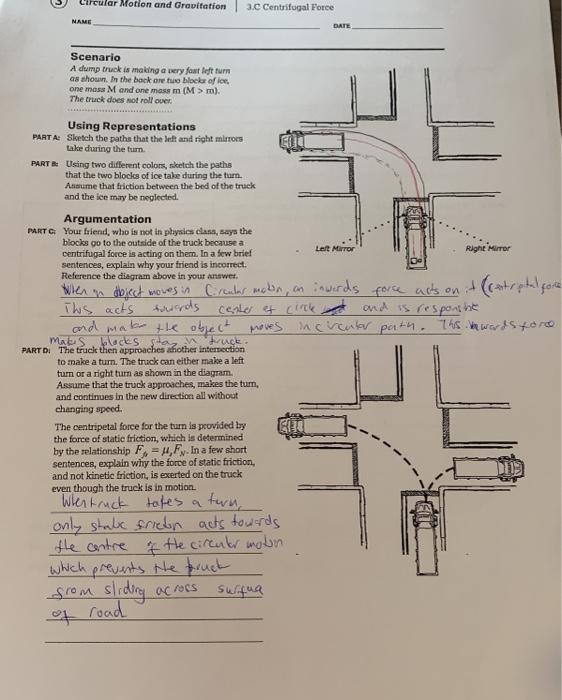 3 Circular Motion and Gravitation | 3.C Centrifugal Force
NAME DATE
Scenario
A dump truck is making a very fast left turn
as shown. In the back are two blocks of ice,
one mass M and one mass m (M > m).
The truck does not roll over.
Using Representations
PART A: Sketch the paths that the left and right mirrors
take during the turn.
PART B: Using two different colors, sketch the paths
that the two blocks of ice take during the turn.
Assume that friction between the bed of the truck
and the ice may be neglected.
Argumentation
PART C: Your friend, who is not in physics class, says the
blocks go to the outside of the truck because a
centrifugal force is acting on them. In a few brief
sentences, explain why your friend is incorrect.
Reference the diagram above in your answer.
Left Mirror
Right Mirror
When an object moves in Circular motion, an inwards force acts on it (centriptal force
This acts towards center of circle and is responsible
and make the object moves in circular path. This inwards force
makes blocks stay in truck.
PART D: The truck then approaches another intersection
to make a turn. The truck can either make a left
turn or a right turn as shown in the diagram.
Assume that the truck approaches, makes the turn,
and continues in the new direction all without
changing speed.
The centripetal force for the turn is provided by
the force of static friction, which is determined
by the relationship Fₛ = μₛFₙ. In a few short
sentences, explain why the force of static friction,
and not kinetic friction, is exerted on the truck
even though the truck is in motion.
When truck takes a turn,
only static friction acts towards
the centre of the circular motion
which prevents the truck
from sliding across surface
of road